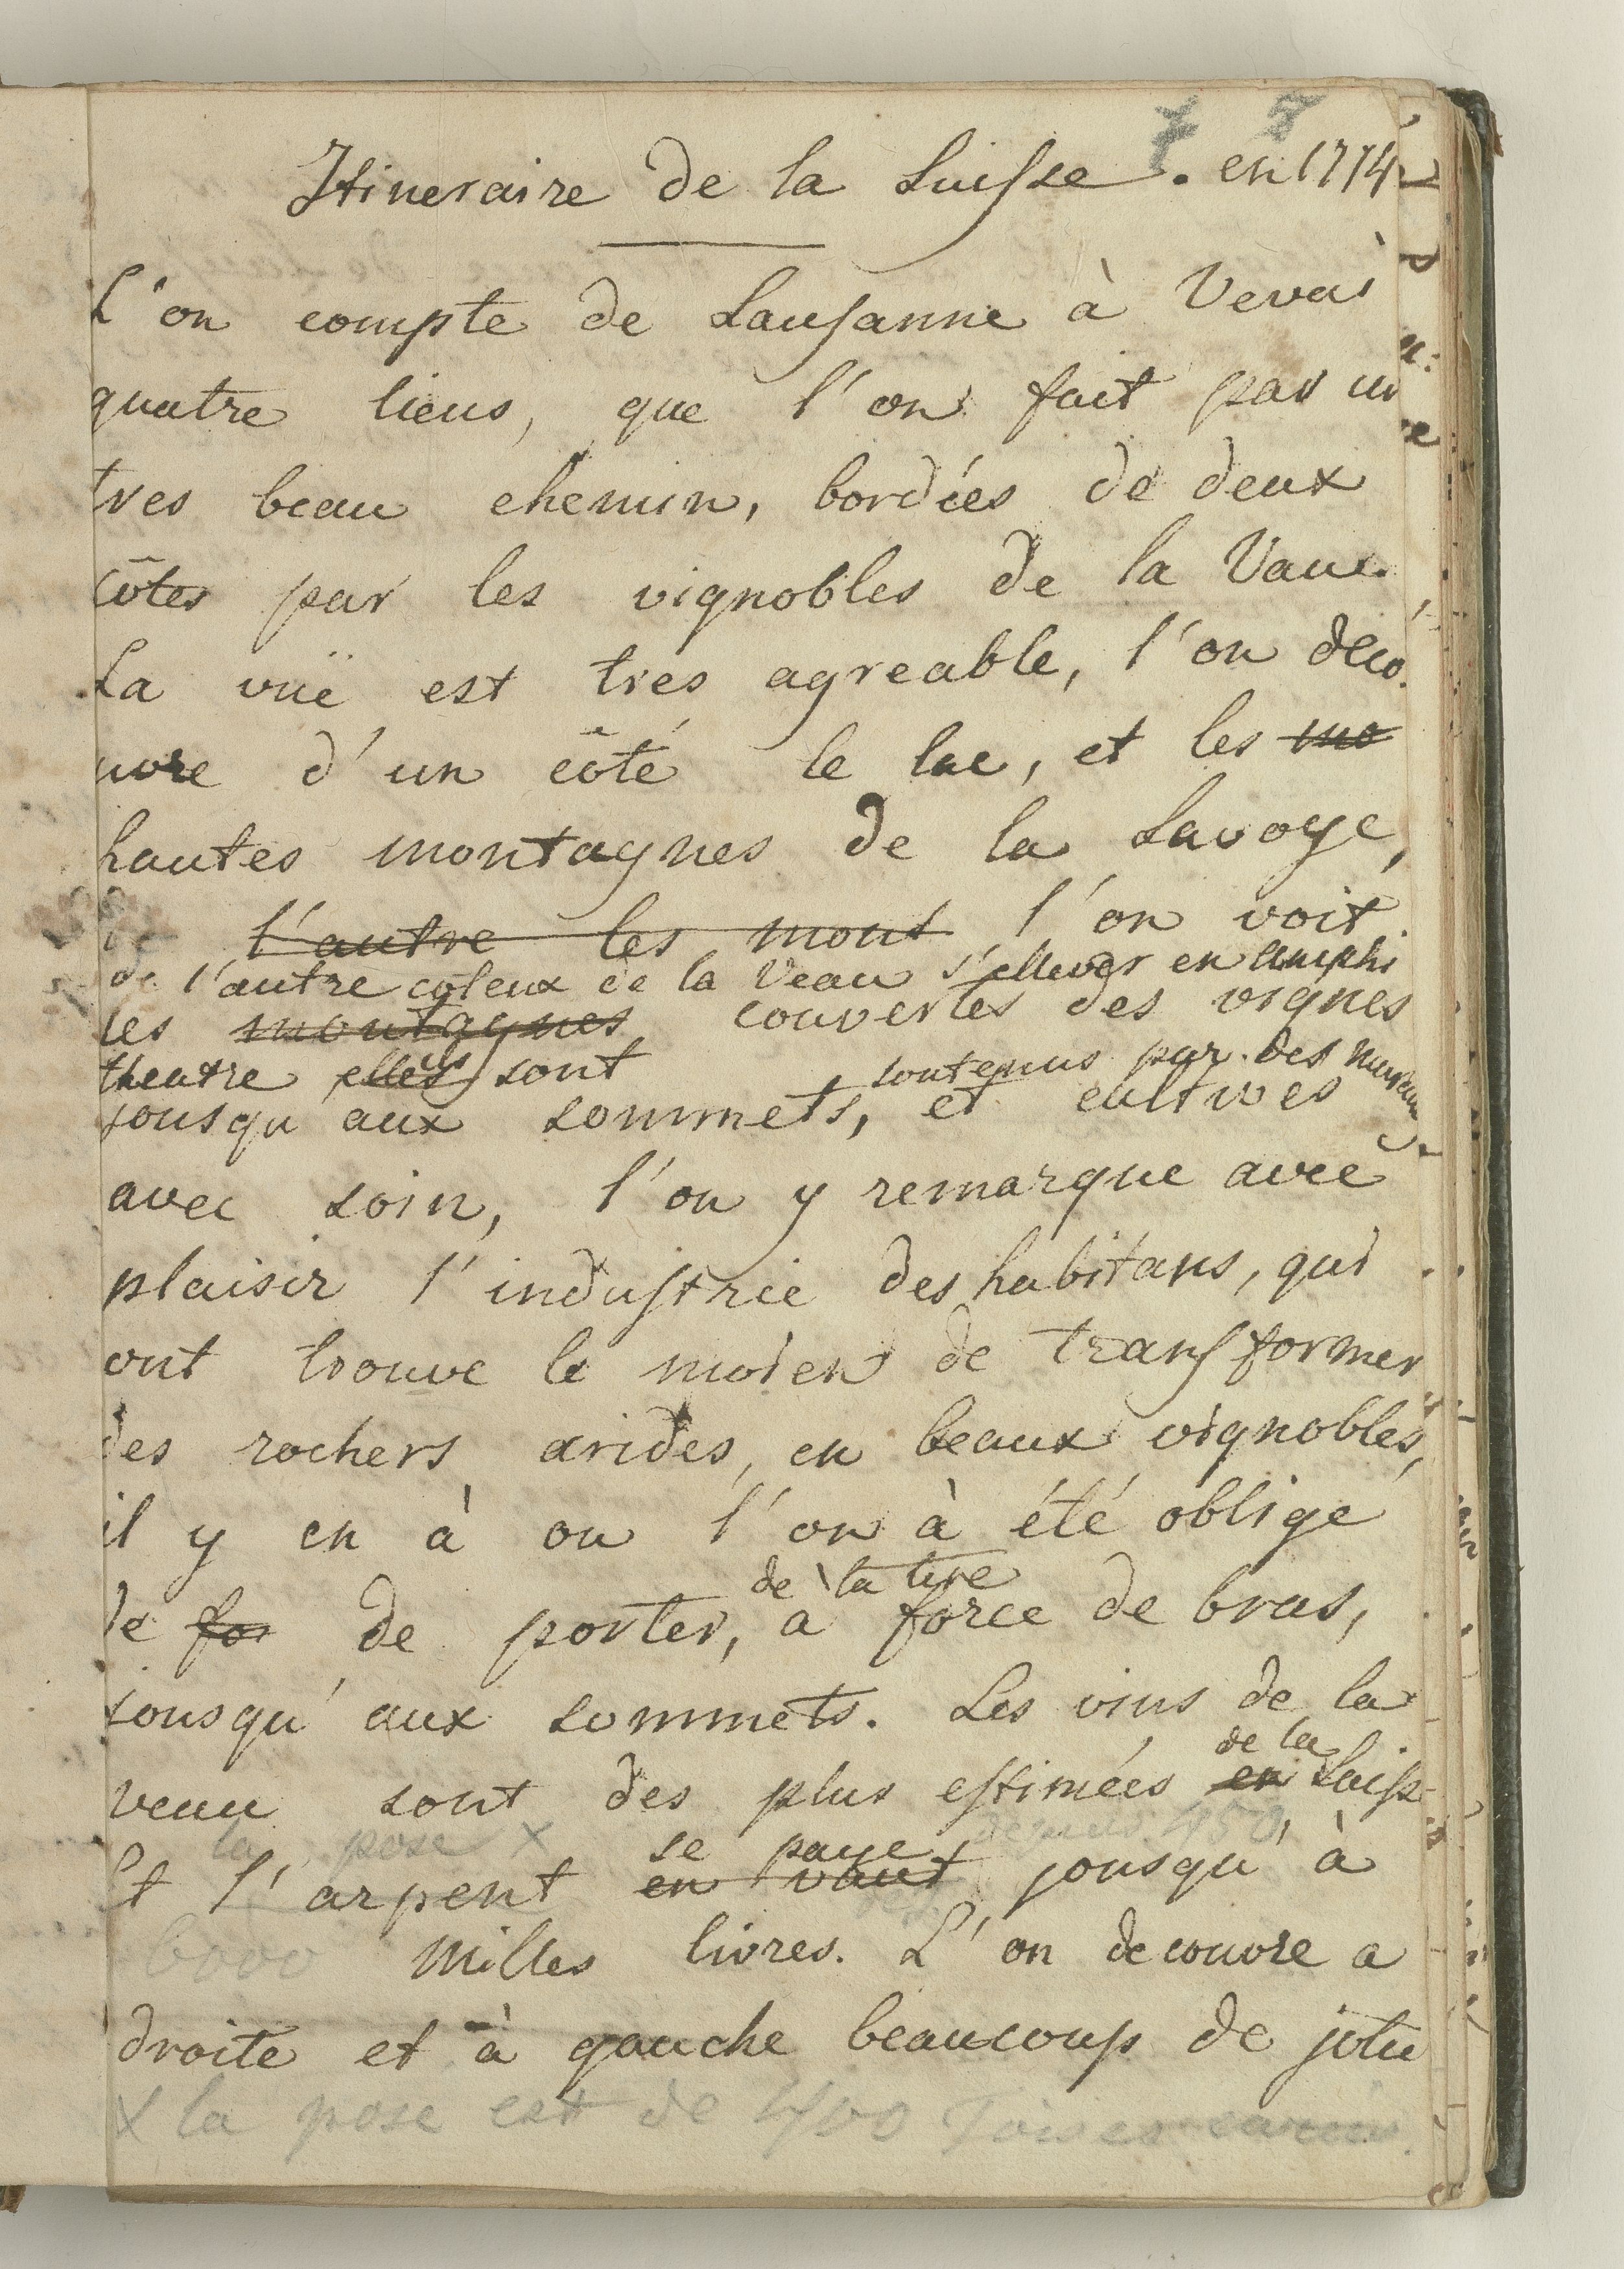 7 7
Itineraire de la Suisse. en 1774
L'on compte de Lausanne à Vevai
quatre lieus, que l'on fait par un
tres beau chemin, bordées de deux
côtes par les vignobles de la Vaux.
La vuë est tres agreable, l'on deco.
uvre d'un côté le lac, et les mo
hautes montagnes de la Savoye,
de l'autre les mont l'on voit
de l'autre côteux de la Veau s'ellever en amphi
les montagnes couvertes des vignes
theatre elles sont soutenus par des muraux
jousqu'aux sommets, et cultives
avec soin, l'on y remarque avec
plaisir l'industrie des habitans, qui
ont trouve le moien de transformer
des rochers arides, en beaux vignobles,
il y en à ou l'on à été oblige
de la tere
de for de porter, a force de bras,
jousqu'aux sommets. Les vins de la
de la
veau sont des plus estimées en Suiss
la pose x se paye depuis 450,
Et l'arpent en vaut jousqu'à
6000 milles livres. L'on decouvre a
droite et à gauche beaucoup de jolie
x la pose est de 4700 Toises